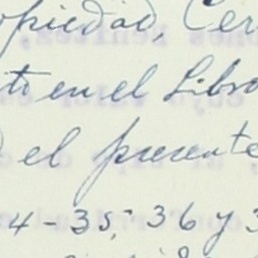 opiedad, Cer
ti en el Libro
el presente
4-35,- 36 y 3